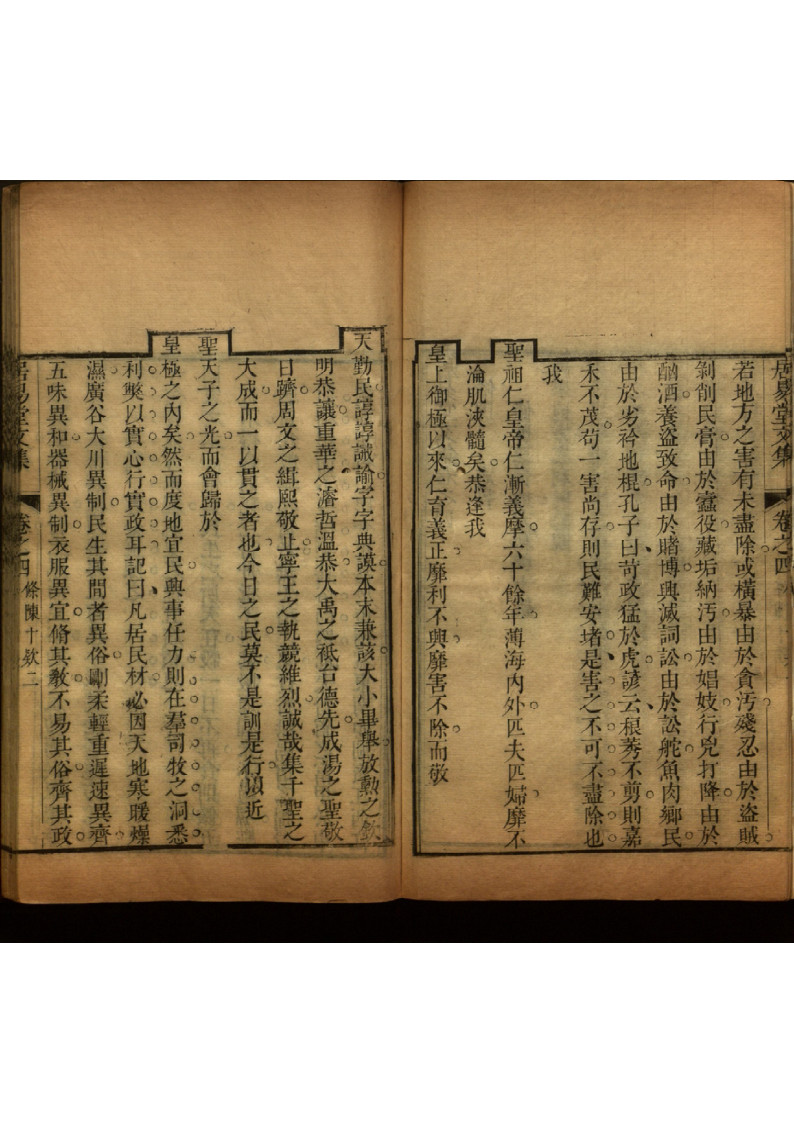 居易堂文集
卷之四
若地方之害有未盡除或橫暴由於貪汚殘忍由於盜賊
剝削民膏由於蠧役藏垢納汚由於娼妓行兇打降由於
酗酒養盜致命由於賭博興滅詞訟由於訟魷魚肉鄉民
由於劣衿地棍孔子曰苛政猛於虎諺云稂莠不剪則嘉
禾不茂苟一害尚存則民難安堵是害之不可不盡除也
我
聖祖仁皇帝仁漸義摩六十餘年薄海內外匹夫匹婦靡不
淪肌浹髓矣恭逢我
皇上御極以來仁育義正靡利不興靡害不除而敬
天勤民諄諄誡諭字字典謨本末兼該大小畢舉放勲之欽
明恭讓重華之濬哲溫恭大禹之祗台德先成湯之聖敬
日躋周文之緝熙敬止寧王之執競維烈誠哉集千聖之
大成而一以貫之者也今日之民莫不是訓是行以近
聖天子之光而會歸於
皇極之內矣然而度地宜民興事任力則在羣司牧之洞悉
利獘以實心行實政耳記曰凡居民材必因天地寒暖燥
濕廣谷大川異制民生其間者異俗剛柔輕重遲速異齊
五味異和器械異制衣服異宜脩其敎不易其俗齊其政
居易堂文集
卷之四
條陳十欵二